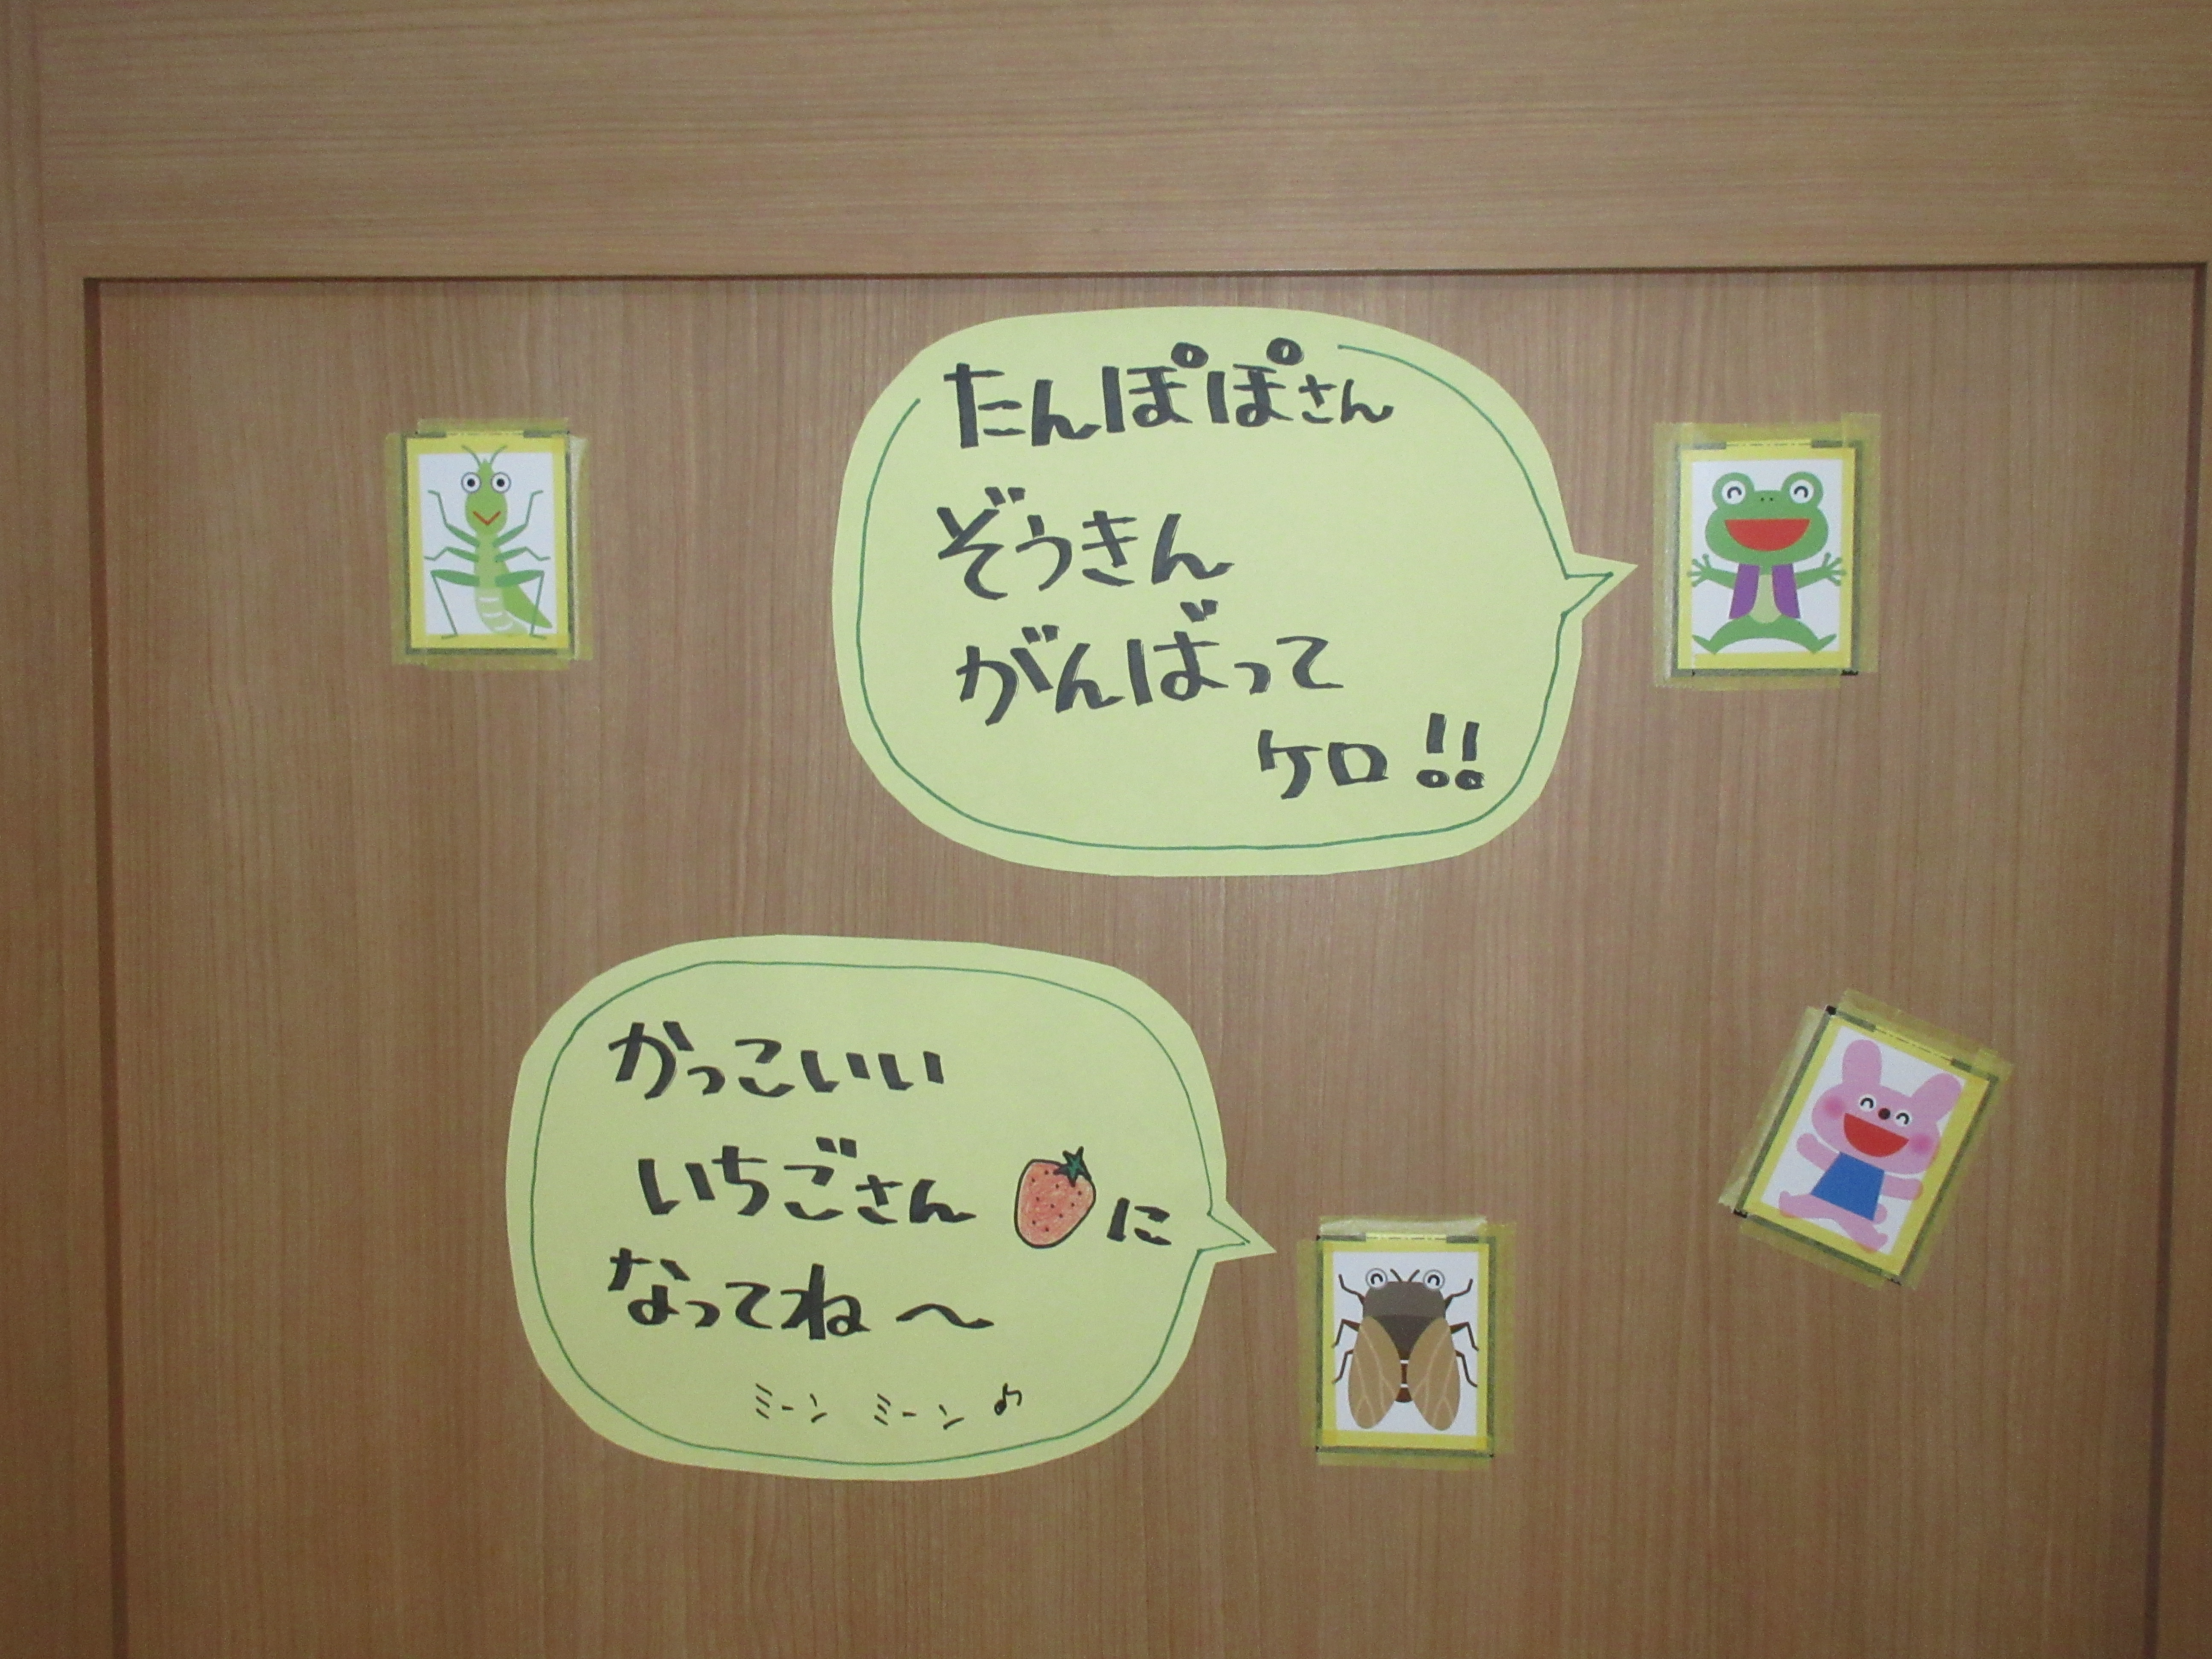 たんぽぽさん
ぞうきん
がんばって
ケロ!!
かっこいい
いちごさん に
なってね～
ミーン ミーン♪